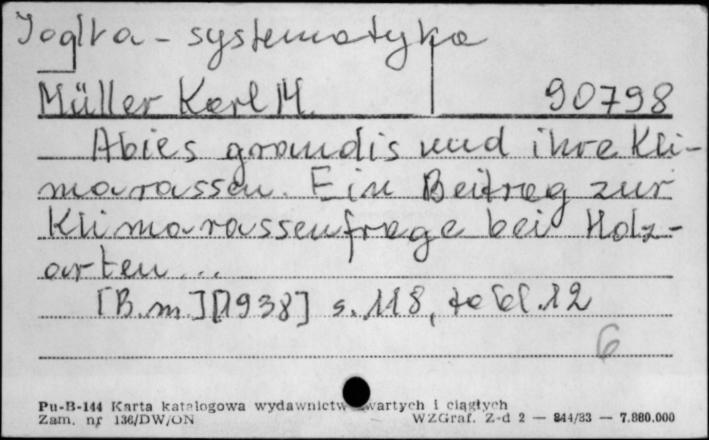 Jodła - systematyka
Müller Karl M. 90798
Abies grandis und ihre Kli-
marassen. Ein Beitrag zur
Klimarassenfrage bei Holz-
arten...
[B.m.] [1938] s. 118, tabl. 12
6
Pu-B-144 Karta katalogowa wydawnictw zwartych i ciągłych
Zam. nr 136/DW/ON WZGraf. Z-d 2 — 844/83 — 7.880.000